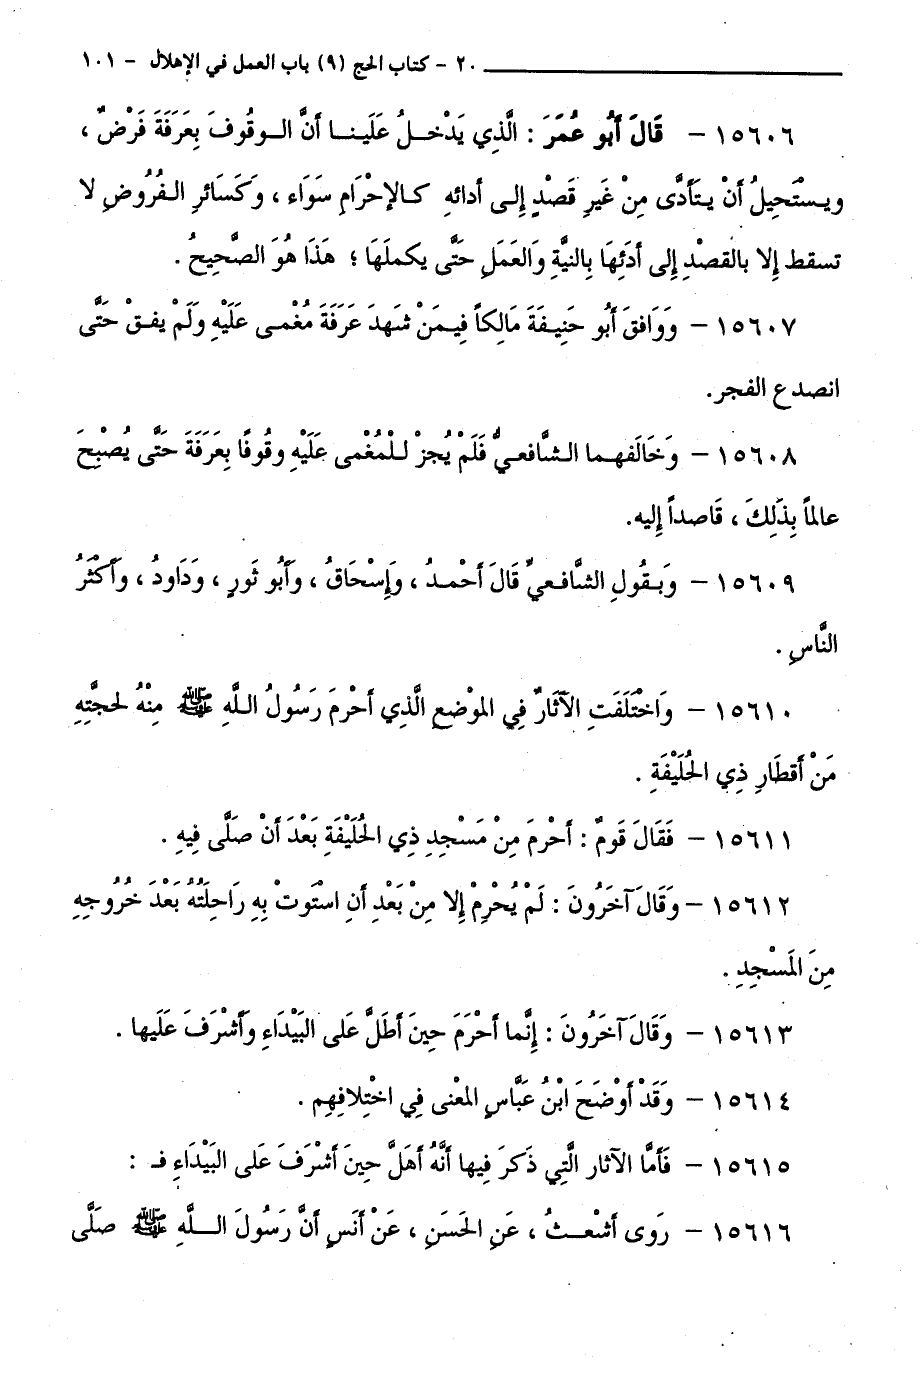 ٢٠ - كتاب الحج (٩) باب العمل في الإهلال - ١٠١
١٥٦٠٦ - قَالَ أَبُو عُمَرَ : الَّذِي يَدْخلُ عَلَينا أَنَّ الوقُوفَ بِعَرَفَةَ فَرْضٌ ،
ويستْحِيلُ أَنْ يتَأَدَّى مِنْ غَيرِ قَصْدٍ إِلى أدائهِ كالإحْرامِ سَوَاء ، وَكَسَائرِ الفُرُوضِ لا
تسقط إِلا بالقصْدِ إِلى أدَئِهَا بِالنيَّةِ وَالعَمَلِ حَتَّى يكملَهَا ؛ هَذَا هُوَ الصَّحِيحُ .
١٥٦٠٧ - وَوَافقَ أَبُو حَنِيفَةَ مَالِكاً فِيمَنْ شهدَ عَرَفَةَ مغْمى عَلَيْهِ وَلَمْ يفقْ حَتَّى
انصدع الفجر.
١٥٦٠٨ - وَخَالَفهما الشَّافعيُّ فَلَمْ يُجزْ للْمُغْمى عَلَيْهِ وقُوفًا بِعَرَفَةَ حَتَّى يُصْبِحَ
عالماً بِذَلِكَ ، قَاصداً إِليه.
١٥٦٠٩ - وَبقُولِ الشَّافعيِّ قَالَ أَحْمدُ ، وَإِسْحَاقُ ، وَأَبُو ثَورٍ ، وَدَاودُ ، وأَكْثَرُ
النَّاسِ .
١٥٦١٠ - وَاخْتَلَفَتِ الآثَارٌ فِي الموْضعِ الَّذِي أَحْرمَ رَسُولُ اللَّهِ ﷺ مِنْهُ لحجَّتِهِ
مَنْ أَقطَارِ ذِي الحُلَيْفَةِ .
١٥٦١١ - فَقَالَ قَومٌ : أَحْرمَ مِنْ مَسْجِدِ ذِي الحُلَيْفَةِ بَعْدَ أَنْ صَلَّى فِيهِ .
١٥٦١٢ - وَقَالَ آخَرُونَ : لَمْ يُحْرِمْ إِلا مِنْ بَعْدِ أَنِ اسْتَوتْ بِهِ رَاحلَتُهُ بَعْدَ خُرُوجِهِ
مِنَ المَسْجِدِ .
١٥٦١٣ - وَقَالَ آخَرُونَ : إِنَّما أَحْرَمَ حِينَ أَطَلَّ عَلى البَيْدَاءِ وَأَشْرَفَ عَلَيها .
١٥٦١٤ - وَقَدْ أَوْضَحَ ابْنُ عَبَّاسٍ المعْنى فِي اخْتِلافِهِم .
١٥٦١٥ - فَأَمَّا الآثار الَّتِي ذكرَ فِيها أَنَّهُ أَهَلَّ حِينَ أَشْرَفَ عَلى البَيْدَاءِ فـ :
١٥٦١٦ - رَوى أَشْعثُ ، عَنِ الحَسَنِ ، عَنْ أَنَسٍ أَنَّ رَسُولَ اللَّهِ ﷺ صَلَّى